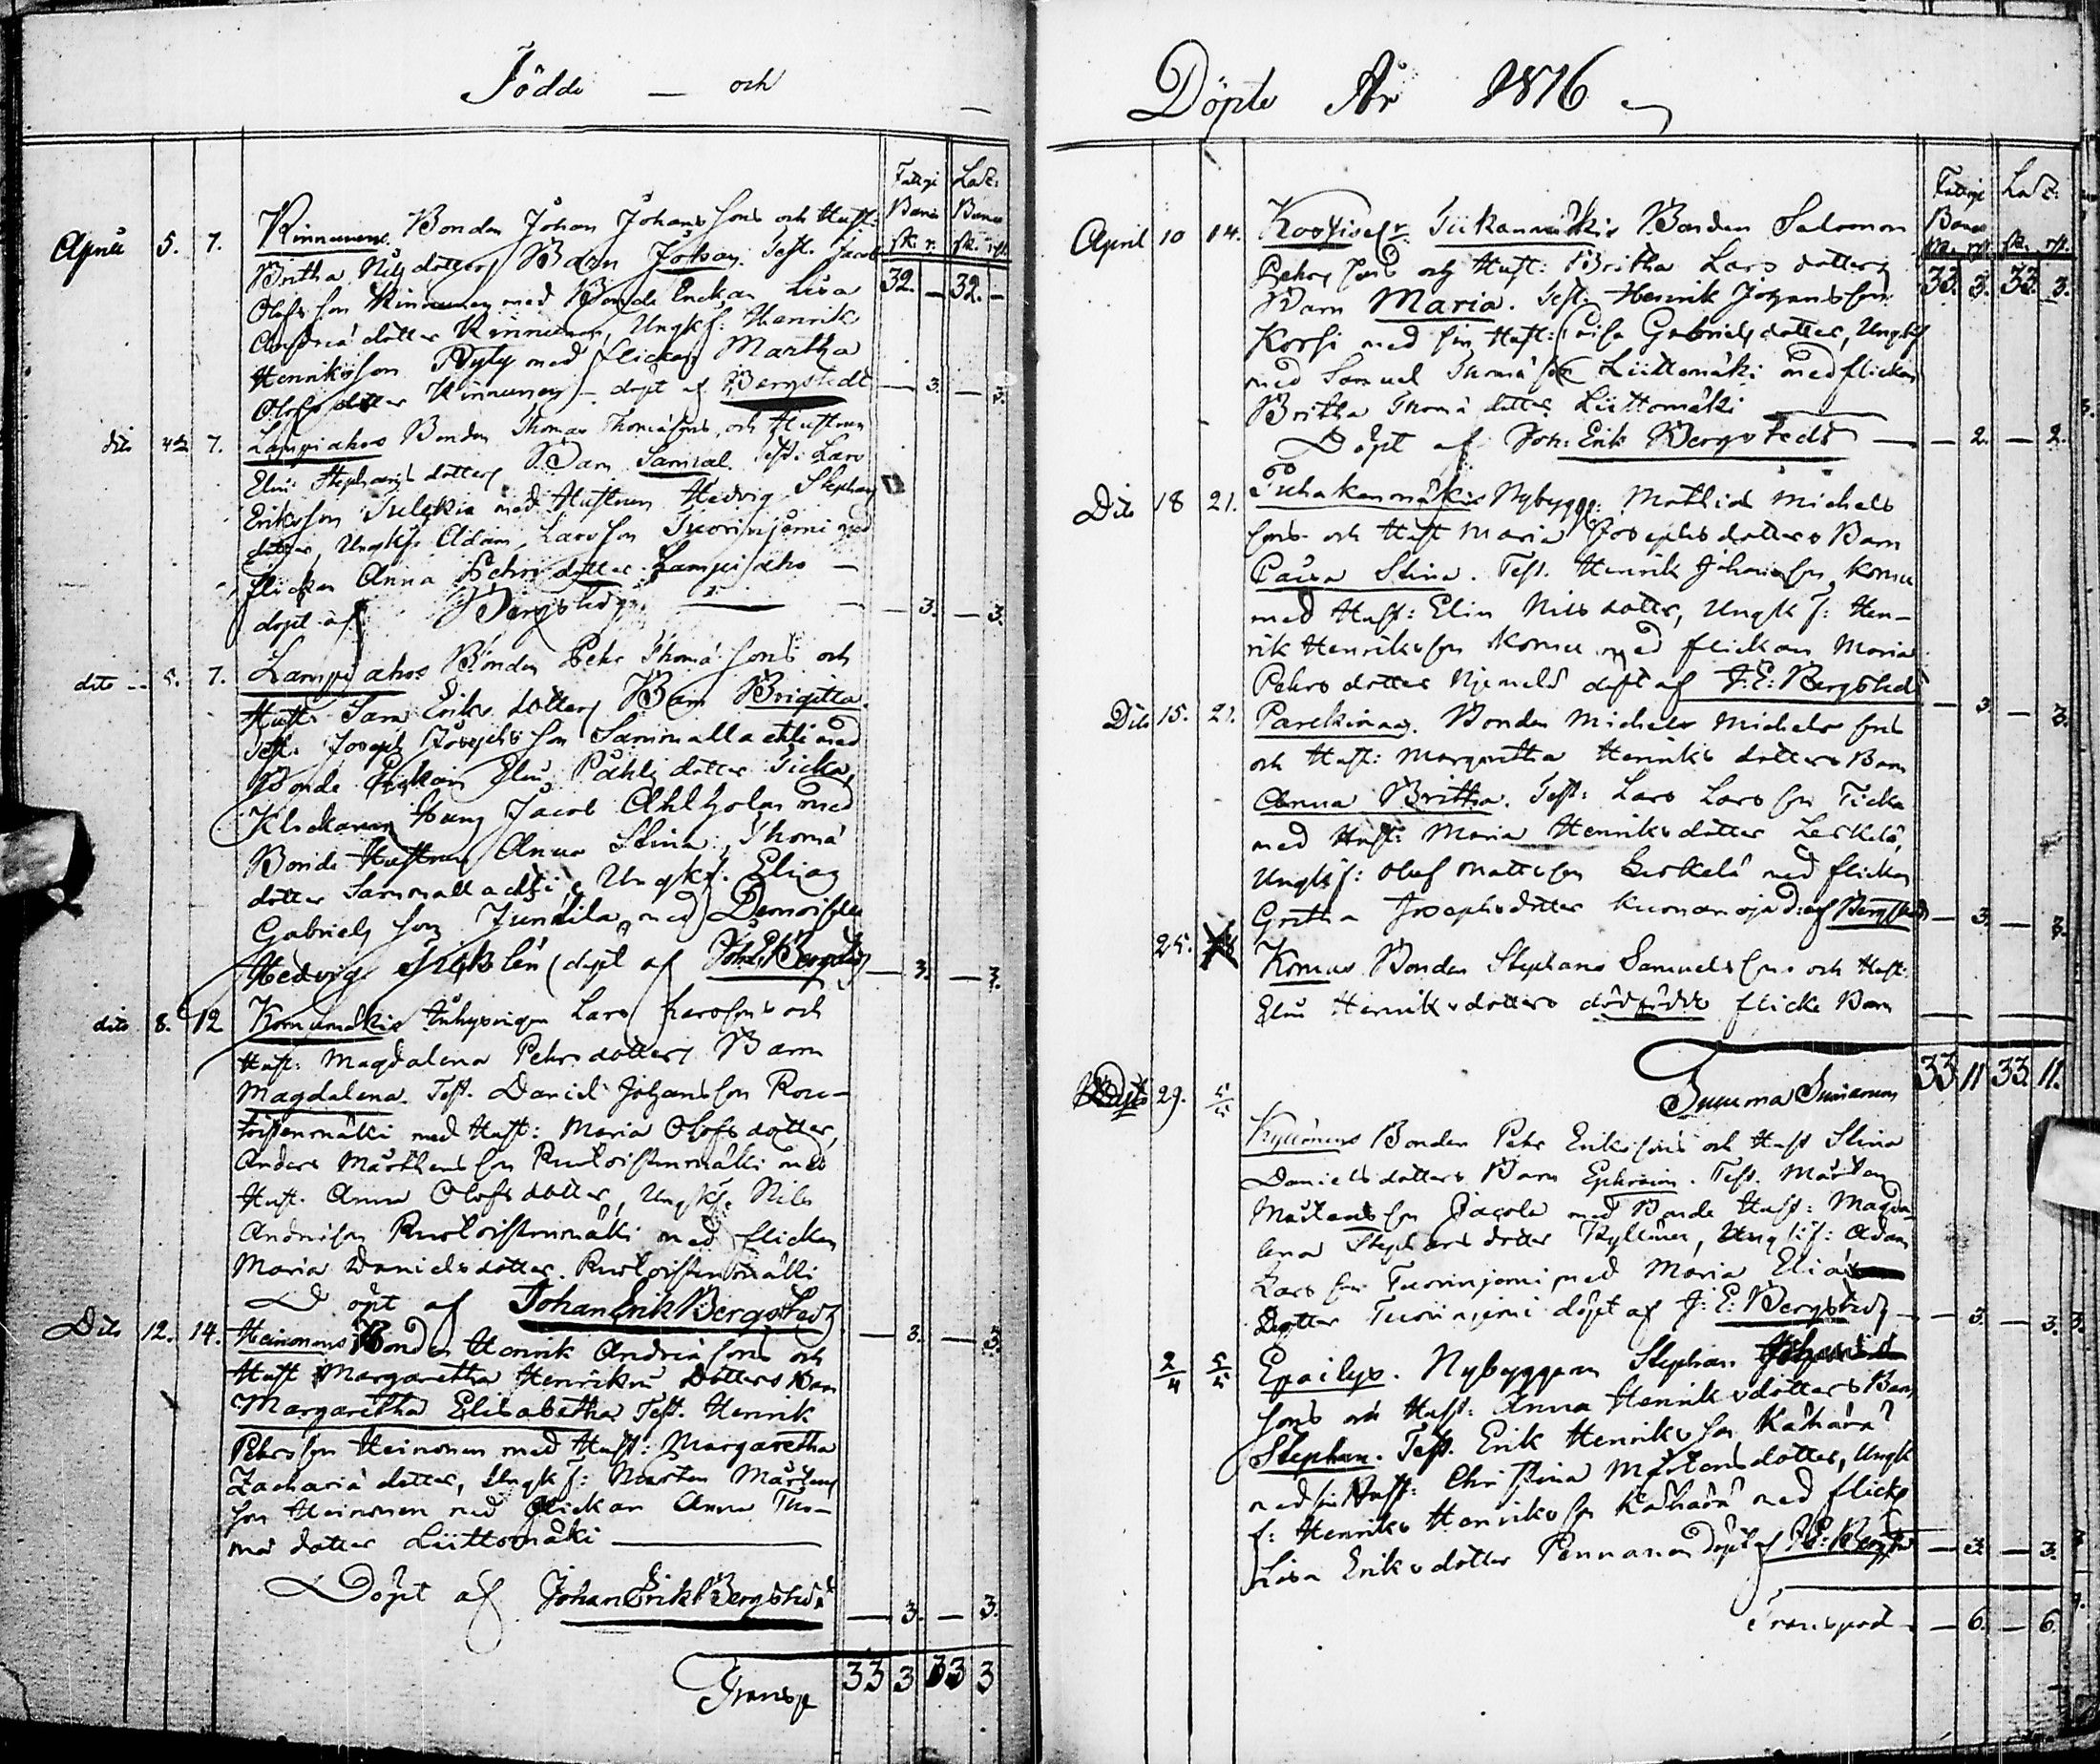 Födde — och
Fattige Lasz:
Barn Barn
April 5. 7. Kinnunens Bonden Johan Johanssons och Hust:
Britha Nilsdotters Barn Johan. Test. Jacob
32. — 32. —
Olofsson Kinnunen med Bonde Enckan Lisa
Andreædotter Kinnunen, Ungk: Henrik
Henriksson Pyly med flickan Martha
Olofsdotter Kinnunen — döpt af Bergstedt — 3. — 3.
dito 7. Lampiahos Bonden Thomas Thomæsons och Hustrun
Elin Stephansdotters Barn Samuel. Test: Lars
Eriksson med Hustrun Hedvig Stephans
dotter, Ungk: Adam Larsson Tuorinjemi med
flickan Anna Pehrsdotter Lampiaho —
döpt af Bergstedt — 3. — 3.
dito 5. 7. Lampiahos Bonden Pehr Thomæsons och
Hust: Sara Eriksdotters Barn Brigitta.
Test: Joseph Josephsson Sammallachti med
Bonde Elin Påhlsdotter Ticka,
Klockaren Jacob Ahlholm med
Bonde Hustrun Anna Stina Thomæ
dotter Sammallachti, Ungk: Elias
Gabrielsson Junttila med Demoiselle
Hedvig döpt af Joh: E: Bergstedt — 3. — 3.
dito 8. 12 Komumäkis Lars Larssons och
Hust: Magdalena Pehrsdotters Barn
Magdalena. Test. Daniel Johansson Rou-
toistenmäki med Hust: Maria Olofsdotter,
Anders Mårtensson Routoistenmäki med
Hust. Anna Olofsdotter, Ungk: Nils
Andersson Routoistenmäki med flickan
Maria Danielsdotter Routoistenmäki
Döpt af Johan Erik Bergstedt — 3. — 3.
Dito 12. 14. Heinonens Bonden Henrik Andreæsons och
Hust Margaretha Henriks Dotters Barn
Margaretha Elisabetha Test. Henrik
Pehrsson Heinonen med Hust: Margaretha
Zachariædotter, Ungk: Mårten Mårtens
son Heinonen med flickan Anna Tho-
mædotter Liittomäki —
Döpt af Johan Erik Bergstedt — 3. — 3.
Transp 33 3 33 3
Döpte År 1816
Fattige Lasz:
April 10 14. Bonden Salomon
Pehrssons och Hust: Britha Larsdotters 33. 3. 33. 3.
Barn Maria. Test. Henrik Johansson
Korhi med sin Hust: Gabrielsdotter, Ungk
med Samuel Thomæson Liittomäki med flickan
Britha Thomædotter Liittomäki
Döpt af Joh: Erik Bergstedt — 2. — 2.
Dito 18 21. Puhakanmäkis Nybygg: Mathias Michels
sons och Hust Maria Josephsdotters Barn
Caisa Stina. Test. Henrik Johansson Komu
med Hust: Elin Nilsdotter, Ungk: Hen-
rik Henriksson Komu med flickan Maria
Pehrsdotter döpt af J: E: Bergstedt — 3. — 3.
Dito 15. 21. Parckinens. Bonden Michels Michelssons
och Hust: Margaretha Henriksdotters Barn
Anna Britha. Test: Lars Larsson Ticka
med Hust: Maria Henriksdotter Leskelä,
Ungk: Olof Mattsson Leskelä med flickan
Gretha Josephsdotter d: af Bergstedt — 3. — 3.
25. Komus Bonden Stephans Samuelssons och Hust:
Elin Henriksdotters dödfödde flicke Barn — —
Summa Summarum 33 11 33. 11.
29. 5/5 Kyllönens Bonden Pehr Erikssons och Hust Stina
Danielsdotters Barn Ephraim. Test. Mårten
Mårtensson med Bonde Hust: Magda-
lena Stephansdotter Kyllönen, Ungk: Adam
Larsson Tuorinjemi med Maria Eliæ
Dotter Tuorinjemi döpt af J: E: Bergstedt — 3. — 3.
2/4 5/5 Epailys. Nybyggaren Stephan
sons och Hust: Anna Henriksdotters Barn
Stephan. Test. Erik Henriksson Kähärä
med sin Hust: Christina Mårtensdotter, Ungk
: Henrik Henriksson Kähärä med flickan
Lisa Eriksdotter Pennanen Döpt af J: E: Bergst — 3. — 3.
Transport — 6. — 6.